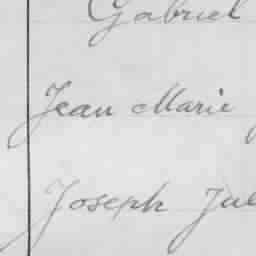 Gabriel
Jean Marie
Joseph Jul